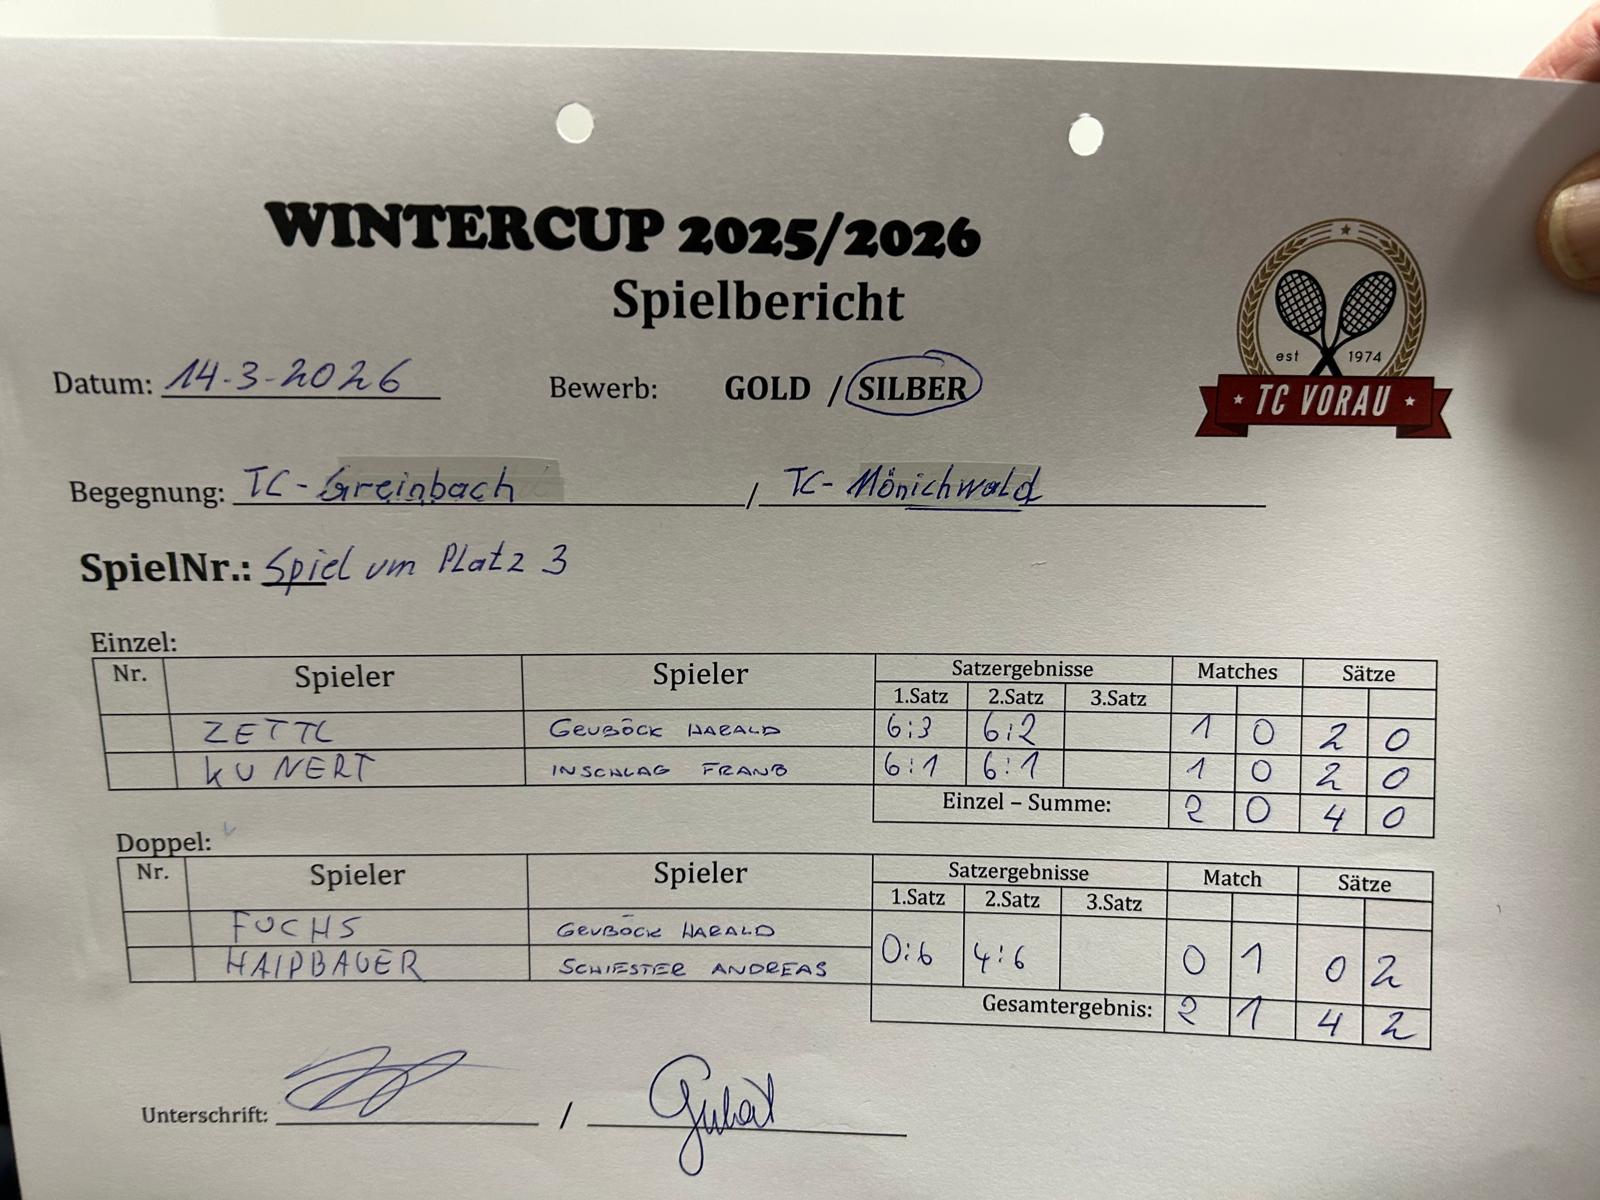 WINTERCUP 2025/2026
Spielbericht
est 1974
TC VORAU
Datum: 14-3-2026 Bewerb: GOLD / SILBER
Begegnung: TC-Greinbach / TC-Mönichwald
SpielNr.: Spiel um Platz 3
Einzel:
Nr. Spieler Spieler Satzergebnisse Matches Sätze
1.Satz 2.Satz 3.Satz
ZETTL GEUBÖCK HARALD 6:3 6:2 1 0 2 0
KUNERT INSCHLAG 6:1 6:1 1 0 2 0
Einzel – Summe: 2 0 4 0
Doppel:
Nr. Spieler Spieler Satzergebnisse Match Sätze
1.Satz 2.Satz 3.Satz
FUCHS GEUBÖCK HARALD
HAIDBAUER SCHIESTER ANDREAS 0:6 4:6 0 1 0 2
Gesamtergebnis: 2 1 4 2
Unterschrift: /